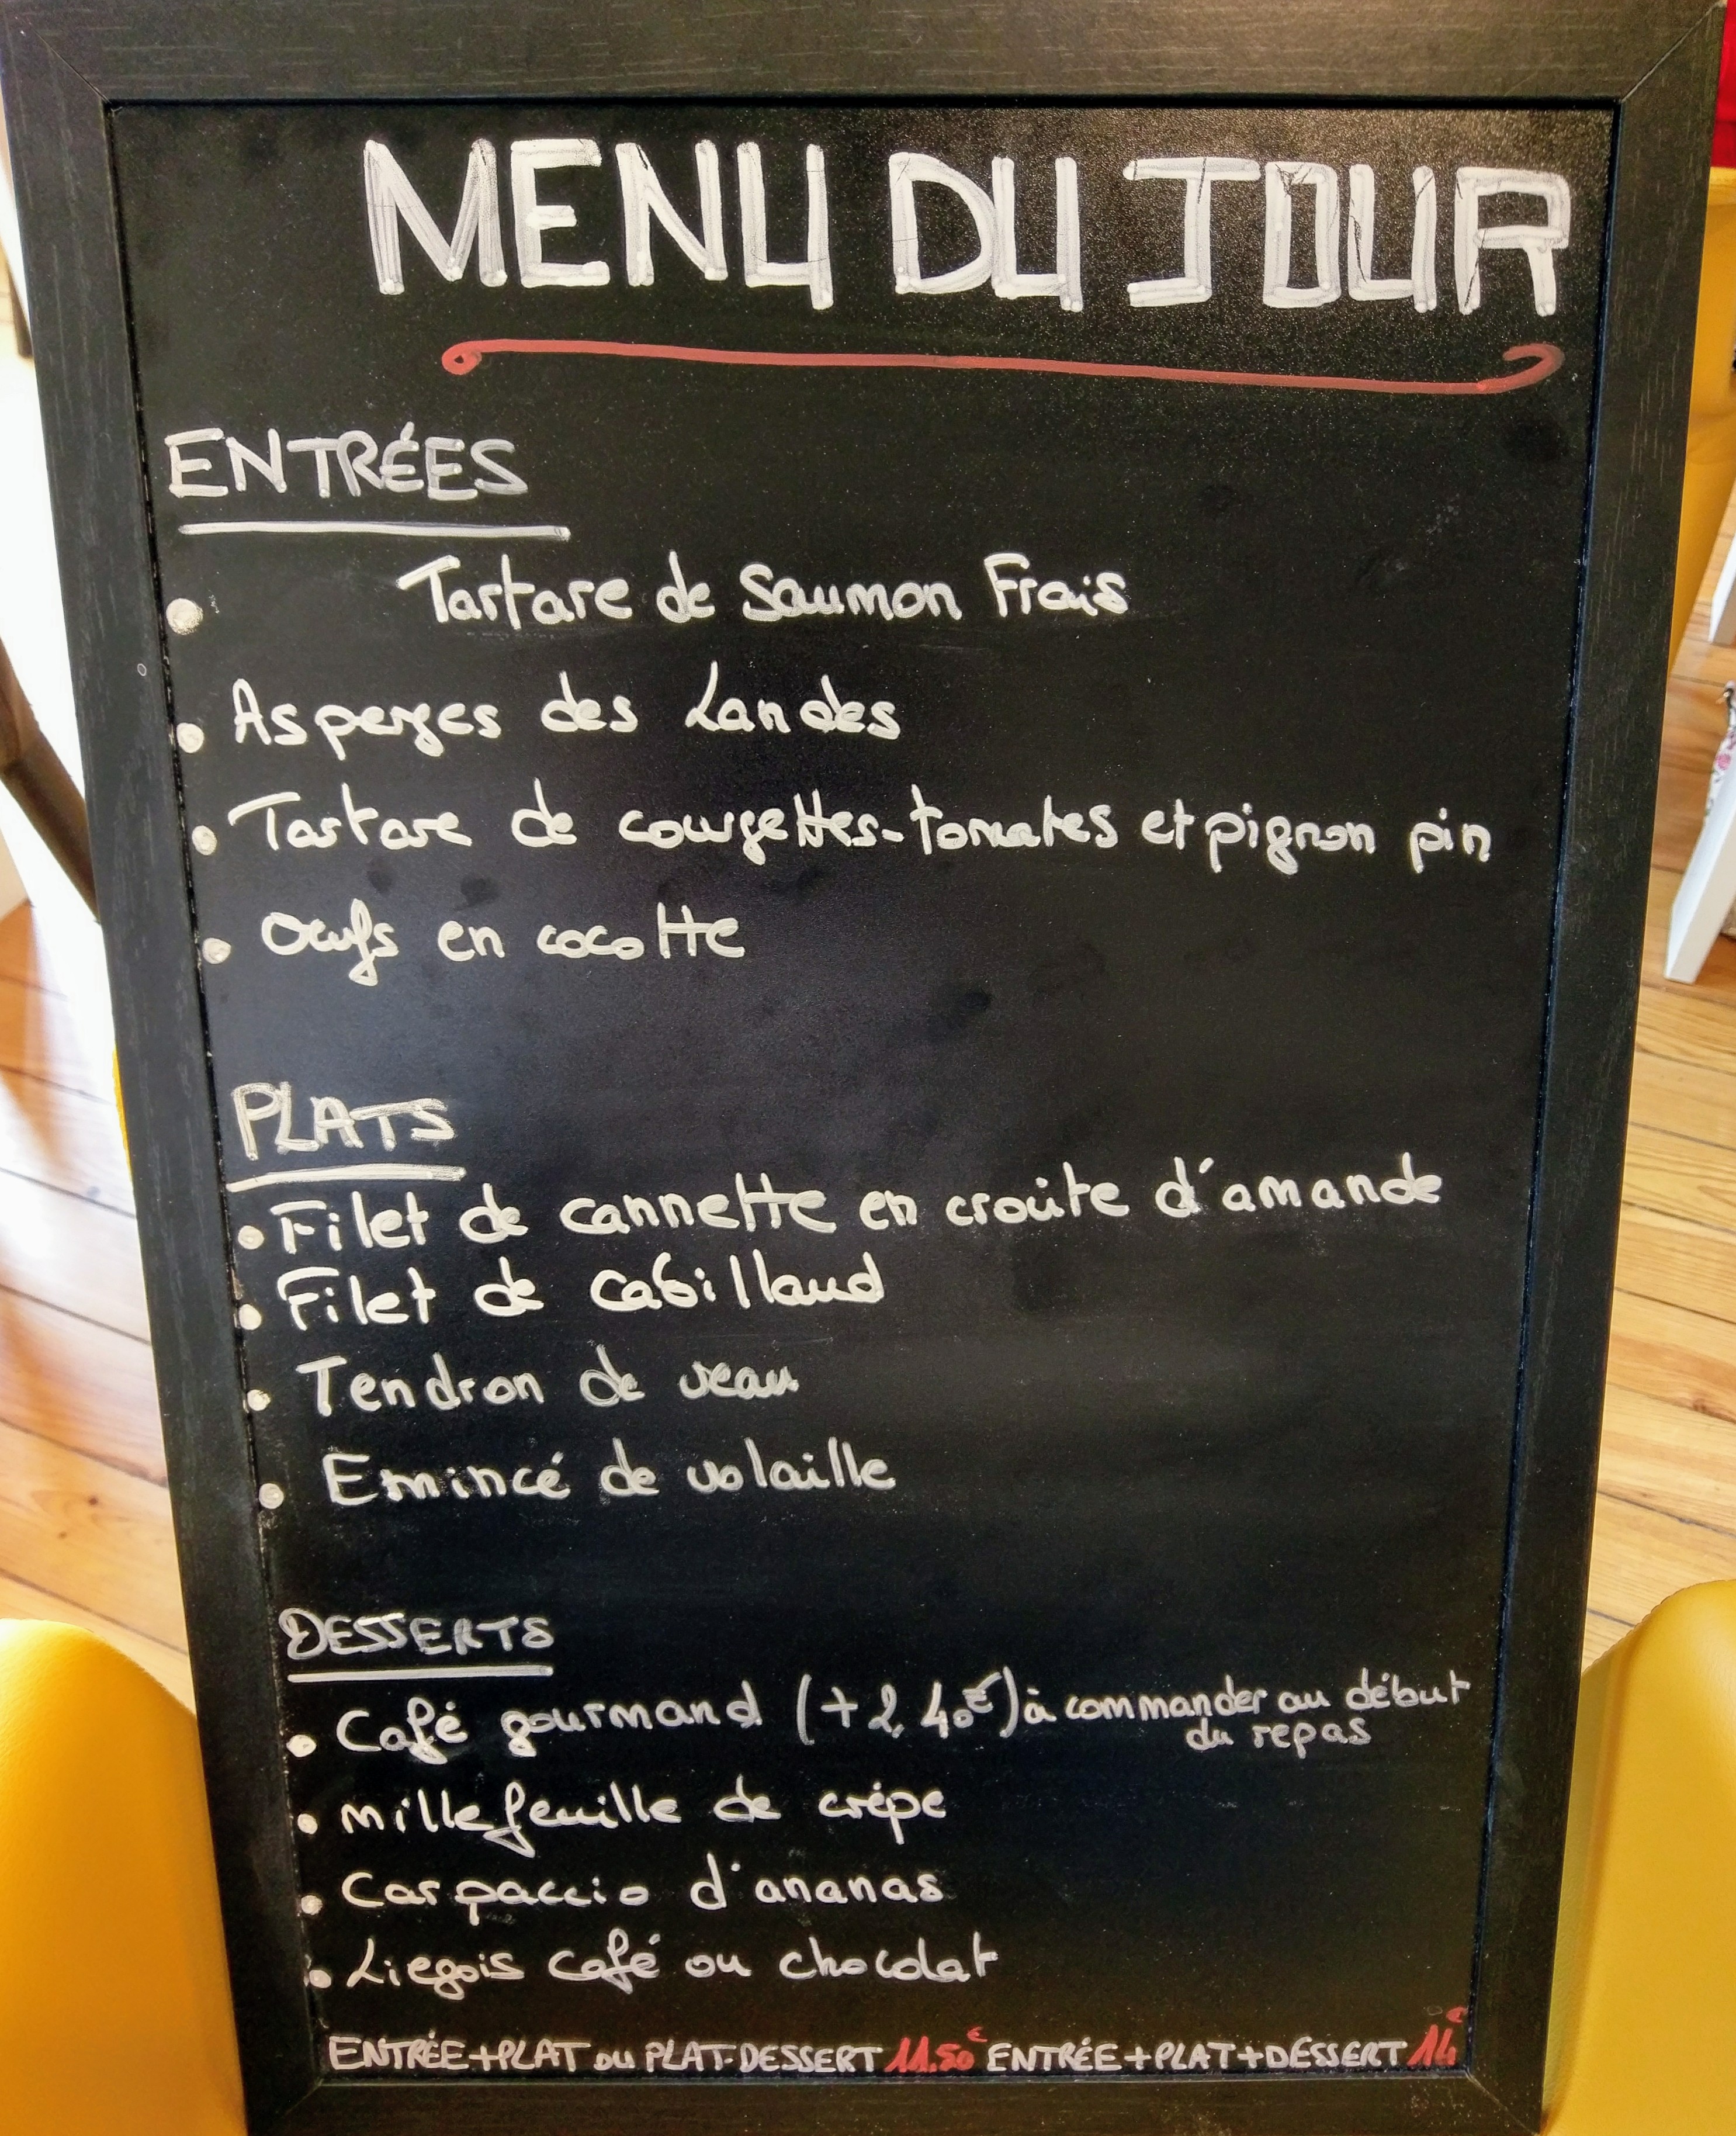 MENU DU JOUR
ENTRÉES
• Tartare de Saumon Frais
• Asperges des Landes
• Tartare de courgettes-tomates et pignon pin
• Oeufs en cocotte
PLATS
• Filet de cannette en croûte d'amande
• Filet de cabillaud
• Tendron de veau
• Emincé de volaille
DESSERTS
• Café gourmand (+2,40€) à commander au début
du repas
• millefeuille de crêpe
• Carpaccio d'ananas
• Liegois café ou chocolat
ENTRÉE+PLAT OU PLAT-DESSERT 11.50€ ENTRÉE+PLAT+DESSERT 14€